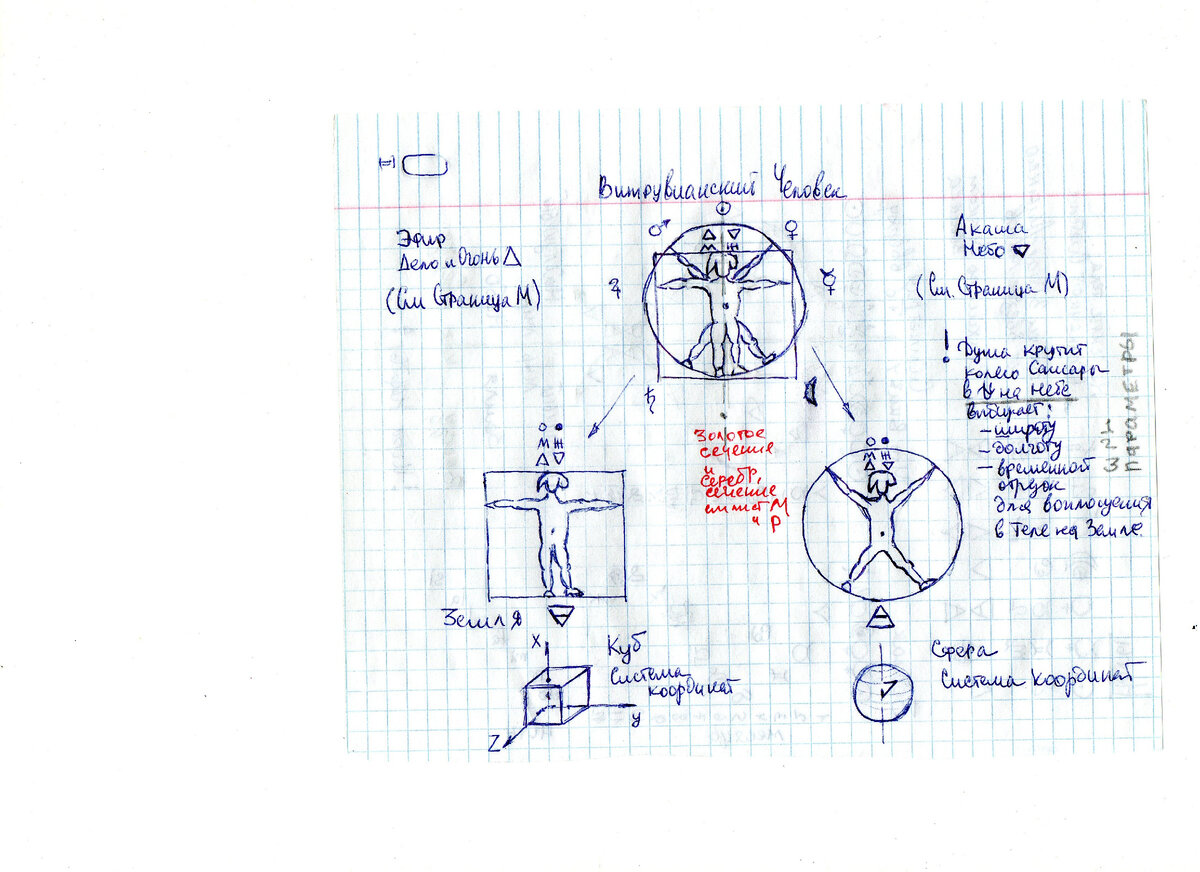 Витрувианский Человек
Эфир
Дело и Огонь △
(См Страница М)
Акаша
Небо ▽
(См. Страница М)
☉
♂ △ ▽ ♀
М Ж
! Душа крутит
колесо Сансары
в на небе
Выбирает:
- широту
- долготу
- временной
отрезок
для воплощения
в теле на Земле.
ПАРАМЕТРЫ
♄
Золотое
сечение
и
серебр.
сечение
М
и Р
○ ●
М Ж
△ ▽
○ ●
М Ж
△ ▽
Земля
Куб
Система
координат
X
y
Z
Сфера
Система координат